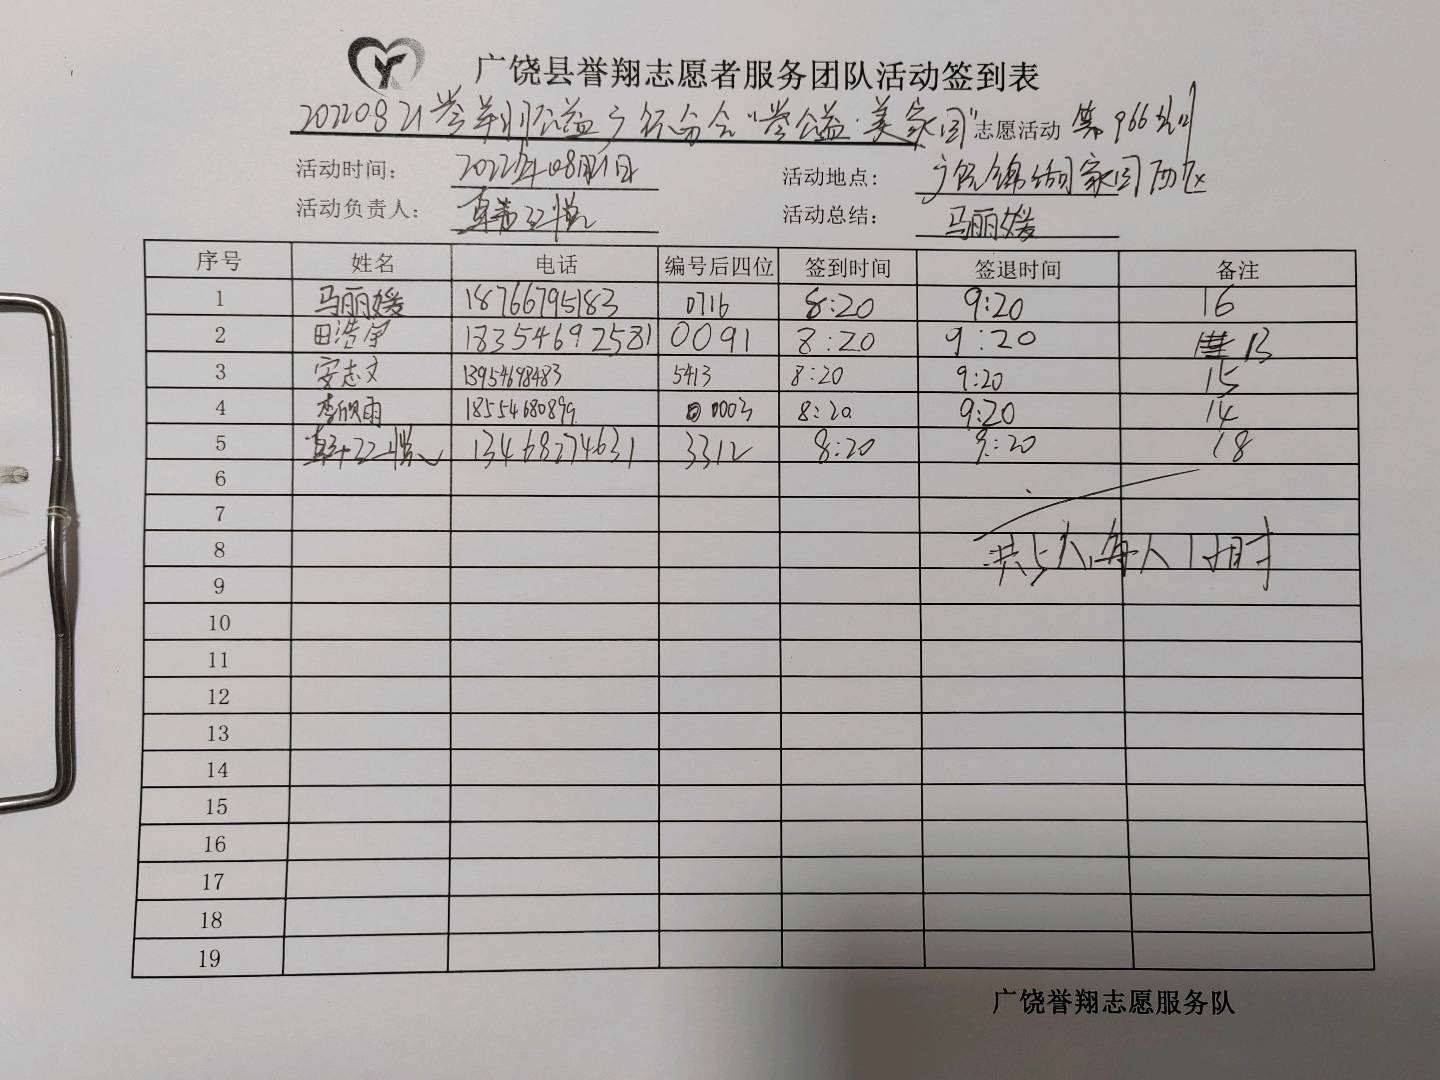 广饶县誉翔志愿者服务团队活动签到表
20220821誉翔公益广饶分会“誉公益·美家园”志愿活动 第966期
活动时间： 2022年08月21日 活动地点： 广饶锦湖家园西区
活动负责人： 活动总结： 马丽媛
序号 姓名 电话 编号后四位 签到时间 签退时间 备注
1 马丽媛 18766795183 0716 8:20 9:20 16
2 田浩伊 18354692581 0091 8:20 9:20 13
3 安志文 13954698483 5413 8:20 9:20 15
4 李欣雨 18554680899 0003 8:20 9:20 14
5 13468274631 3312 8:20 9:20 18
6
7
8 共5人,每人1小时
9
10
11
12
13
14
15
16
17
18
19
广饶誉翔志愿服务队